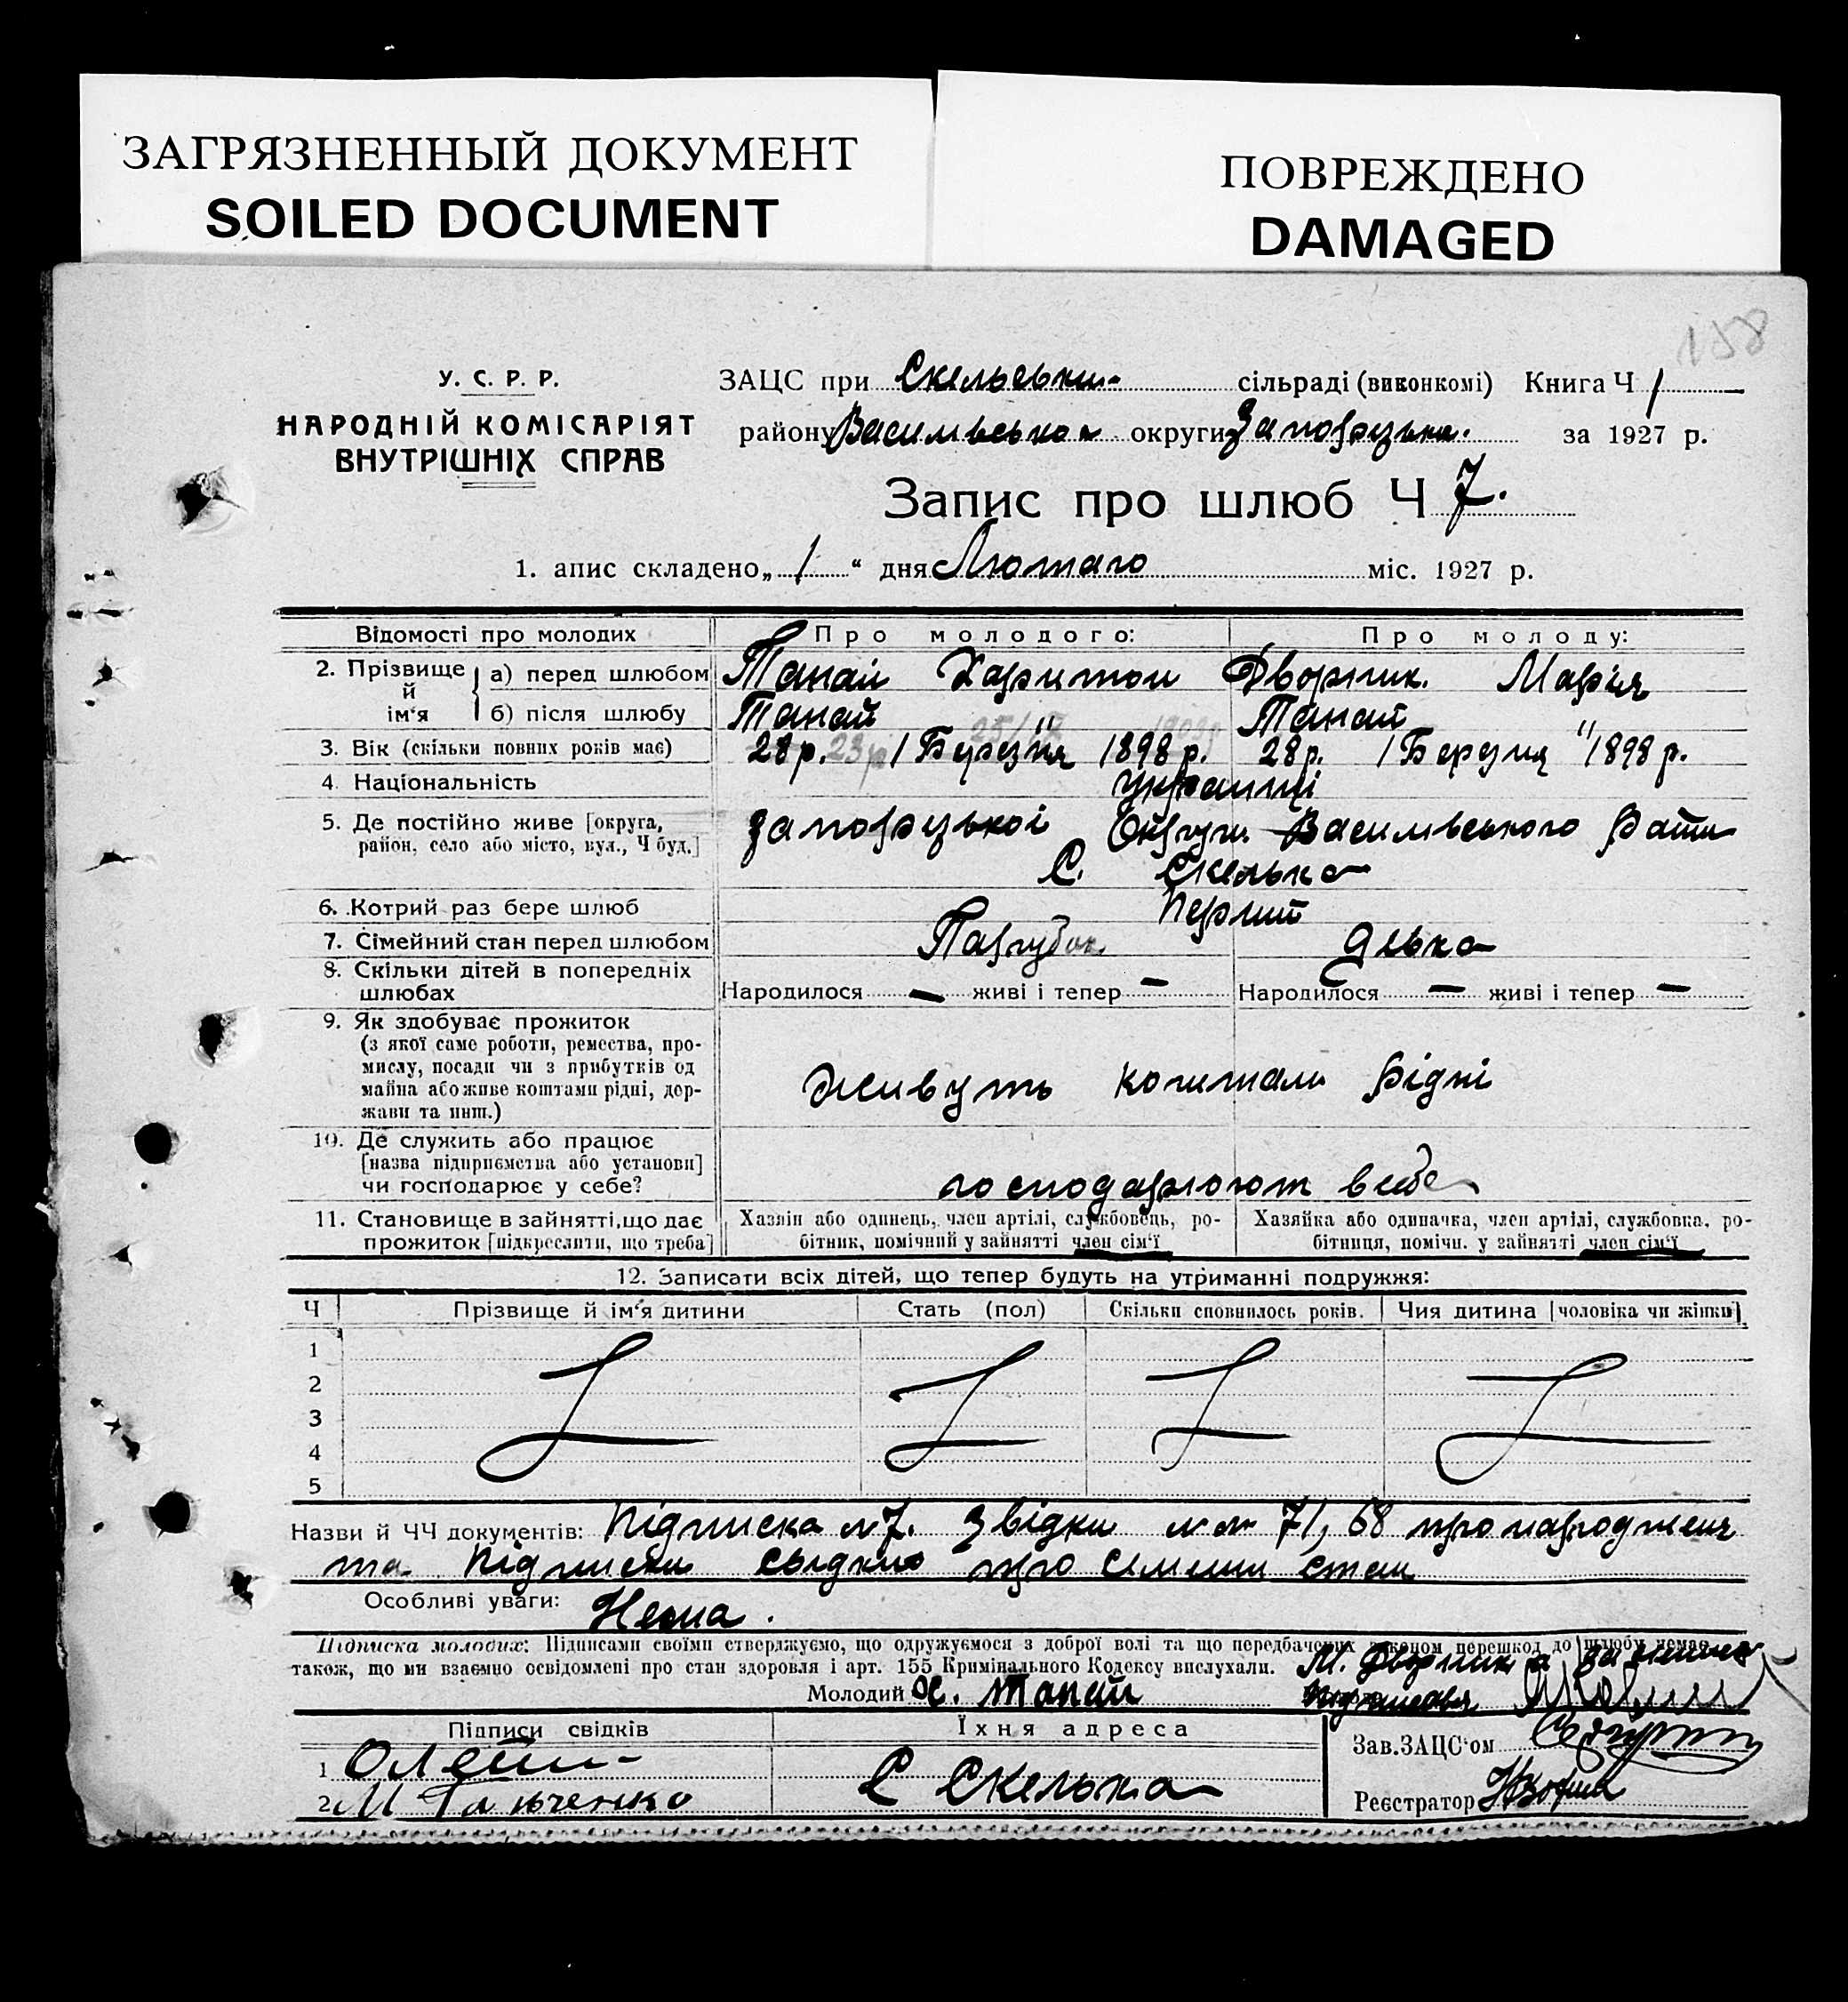 ЗАГРЯЗНЕННЫЙ ДОКУМЕНТ
SOILED DOCUMENT
ПОВРЕЖДЕНО
DAMAGED
158
У. С. Р. Р.
НАРОДНІЙ КОМІСАРІЯТ
ВНУТРІШНІХ СПРАВ
ЗАЦС при Скельськи- сільраді (виконкомі) Книга Ч 1
району Василівсько округи Запорізька. за 1927 р.
Запис про шлюб Ч 7.
1. апис складено „ 1 “ дня Лютаго міс. 1927 р.
Відомості про молодих
Про молодого:
Про молоду:
2. Прізвище й ім‘я
а) перед шлюбом
Танай Харитон
Дворник. Марія
б) після шлюбу
Танай "
Танай "
3. Вік (скільки повних років має)
28р. 23р 1 Березня 1898 р.
28р. 1 Березня 1898 р.
4. Національність
українці
5. Де постійно живе [округа,
район, село або місто, вул., Ч буд.]
Запорізької Округи Василівського Району
С. Скелька
6. Котрий раз бере шлюб
Перший
7. Сімейний стан перед шлюбом
Парубок
Дівка
8. Скільки дітей в попередніх
шлюбах
Народилося — живі і тепер —
Народилося — живі і тепер —
9. Як здобуває прожиток
(з якої саме роботи, ремества, про-
мислу, посади чи з прибутків од
майна або живе коштами рідні, дер-
жави та инш.)
живуть коштами рідні
10. Де служить або працює
[назва підприємства або установи]
чи господарює у себе?
господарюют в себе
11. Становище в зайнятті, що дає
прожиток [підкреслити, що треба]
Хазяїн або одинець, член артілі, службовець, ро-
бітник, помічний у зайнятті член сім‘ї
Хазяйка або одиначка, член артілі, службовка, ро-
бітниця, помічн. у зайнятті член сім‘ї
12. Записати всіх дітей, що тепер будуть на утриманні подружжя:
Ч
Прізвище й ім‘я дитини
Стать (пол)
Скільки сповнилось років.
Чия дитина [чоловіка чи жінки]
1
2
3
4
5
Назви й ЧЧ документів: Підписка №7. Звідки №№ 71, 68 про народження
та Підписки свідків про Сімейни стан
Особливі уваги: Нема.
Підписка молодих: Підписами своїми стверджуємо, що одружуємося з доброї волі та що передбачених законом перешкод до шлюбу немає,
також, що ми взаємно освідомлені про стан здоровля і арт. 155 Кримінального Кодексу вислухали.
М. Дворник а за
Молодий Х. Танай
Підписи свідків
Їхня адреса
1
2 М Ганченко
С Скелька
Зав. ЗАЦС‘ом
Реєстратор